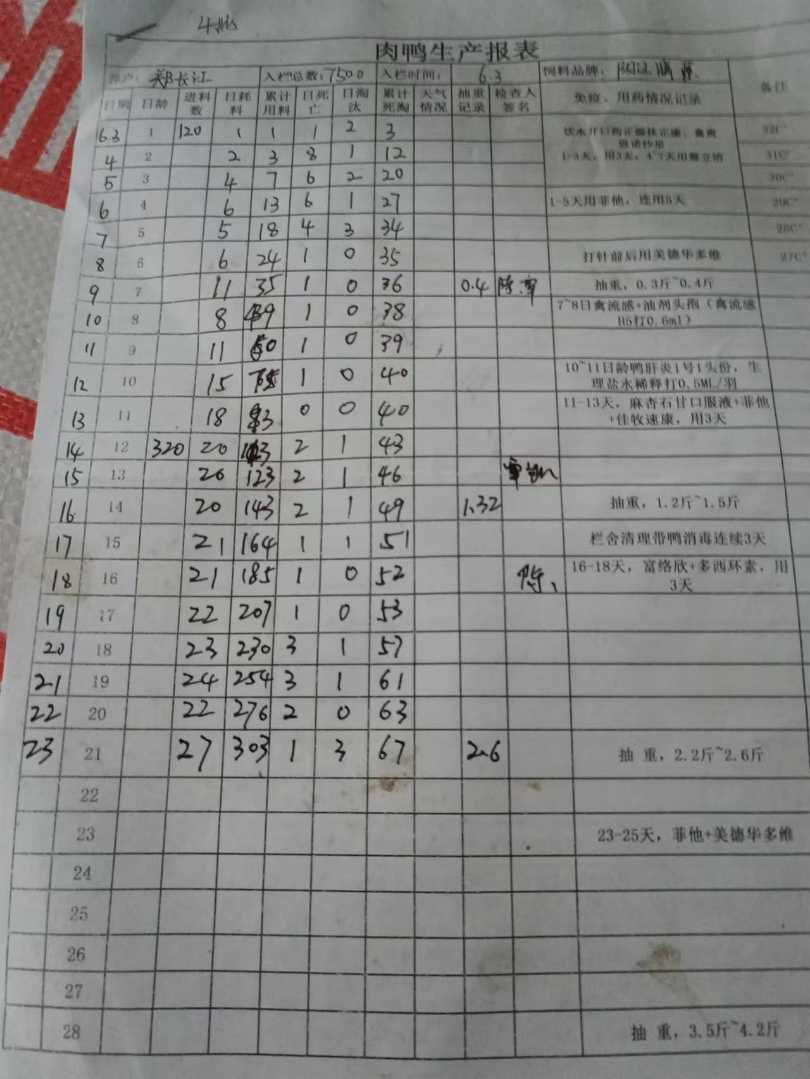 4批
肉鸭生产报表
养户: 郑长江 入栏总数: 7500 入栏时间: 6.3 饲料品牌:
日期 日龄 进料数 日耗料 累计用料 日死亡 日淘汰 累计死淘 天气情况 抽重记录 检查人签名 免疫、用药情况记录 备注
6.3 1 120 1 1 1 2 3 32C°
4 2 2 3 8 1 12 1-3天，用3天，4-7天用 31C°
5 3 4 7 6 2 20 30C°
6 4 6 13 6 1 27 1-5天用菲他，连用5天 29C°
7 5 5 18 4 3 34 28C°
8 6 6 24 1 0 35 打针前后用美德华多维 27C°
9 7 11 35 1 0 36 0.4 陈 抽重，0.3斤~0.4斤
10 8 8 1 0 38 7~8日禽流感+油剂头孢（禽流感H5打0.6ml）
11 9 11 1 0 39
12 10 15 1 0 40 10~11日龄鸭肝炎1号1头份，生理盐水稀释打0.5ML/羽
13 11 18 0 0 40 11-13天，麻杏石甘口服液+菲他+佳牧速康，用3天
14 12 320 20 2 1 43
15 13 20 123 2 1 46
16 14 20 143 2 1 49 1.32 抽重，1.2斤~1.5斤
17 15 21 164 1 1 51 栏舍清理带鸭消毒连续3天
18 16 21 185 1 0 52 陈 16-18天，富络欣+多西环素，用3天
19 17 22 207 1 0 53
20 18 23 230 3 1 57
21 19 24 254 3 1 61
22 20 22 276 2 0 63
23 21 27 303 1 3 67 2.6 抽 重，2.2斤~2.6斤
22
23 23-25天，菲他+美德华多维
24
25
26
27
28 抽 重，3.5斤~4.2斤